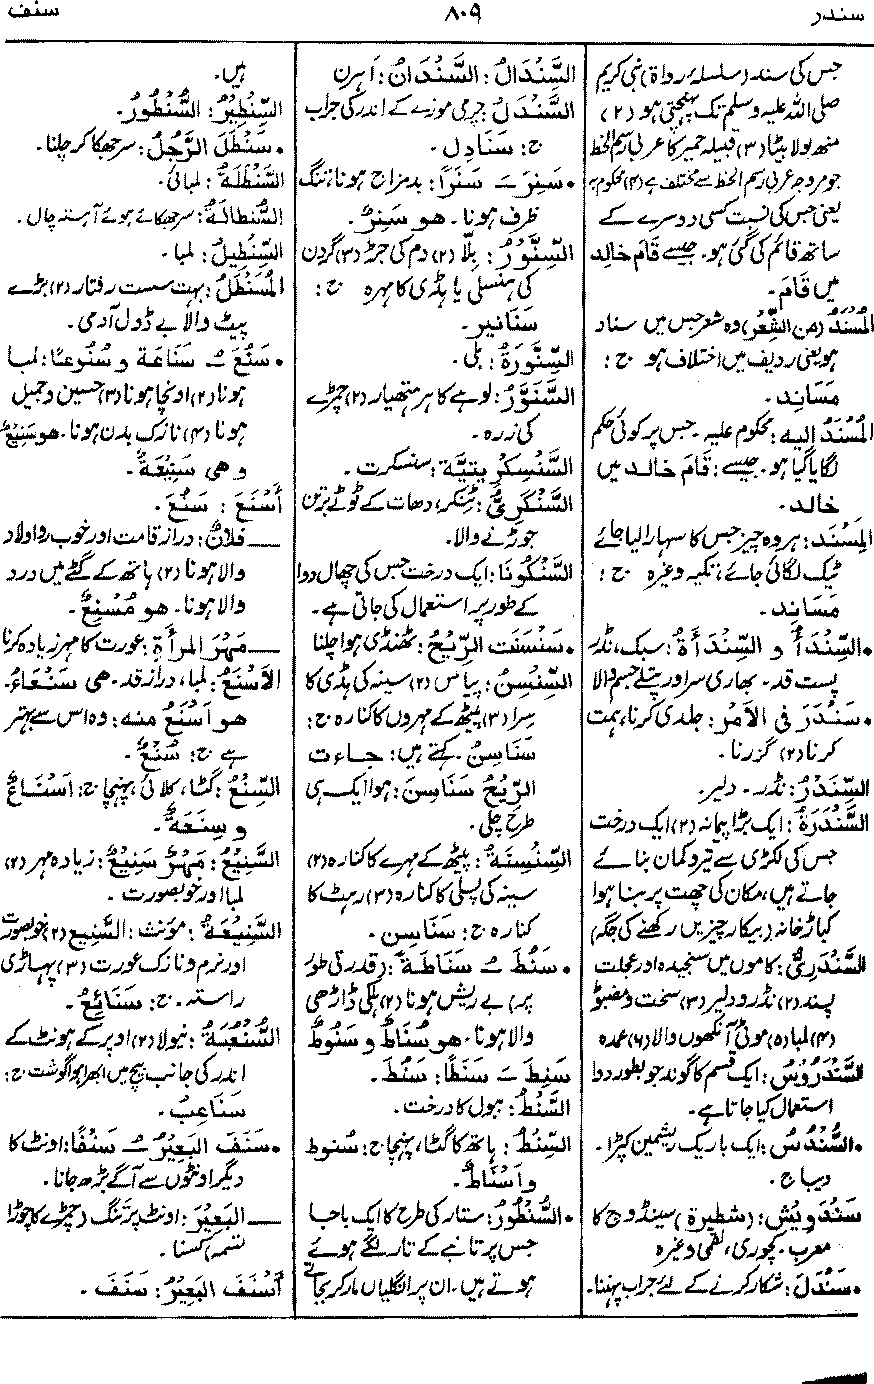 سندر
٨٠٩
سنف
جس کی سند (سلسلۂ رواۃ) نبی کریم
صلی اللہ علیہ وسلم تک پہنچتی ہو (٢)
منھ بولا بیٹا (٣) قبیلہ حمیر کا عربی رسم الخط
جو مروجہ عربی رسم الخط سے مختلف ہے (۴) محکوم بہ
یعنی جس کی نسبت کسی دوسرے کے
ساتھ قائم کی گئی ہو۔ جیسے قَامَ خالِد
میں قَامَ۔
المُسْنَدُ (من الشِّعْر) وہ شعر جس میں سناد
ہو یعنی ردیف میں اختلاف ہو ج:
مَسَانِد۔
المُسْنَدُ إليه: محکوم علیہ۔ جس پر کوئی حکم
لگایا گیا ہو۔ جیسے: قَامَ خالد میں
خالد۔
المِسْنَد: ہر وہ چیز جس کا سہارا لیا جائے
ٹیک لگائی جائے، تکیہ وغیرہ ج:
مَسَانِد۔
•السِّنْدَأْ و السِّنْدَأَةُ: سبک، نڈر
پست قد۔ بھاری سر اور پتلے جسم والا
•سَنْدَرَ فى الأمْرِ: جلدی کرنا، ہمت
کرنا (٢) گزرنا۔
السِّنْدَرُ: نڈر۔ دلیر۔
السَّنْدَرَةُ: ایک بڑا پیمانہ (٢) ایک درخت
جس کی لکڑی سے تیر و کمان بنائے
جاتے ہیں، مکان کی چھت پر بنا ہوا
کباڑ خانہ (بیکار چیزیں رکھنے کی جگہ)
السَّنْدَرِيُّ: کاموں میں سنجیدہ اور عجلت
پسند (٢) نڈر و دلیر (٣) سخت و مضبوط
(۴) لمبا (۵) موٹی آنکھوں والا (٦) عمدہ
السَّنْدَرُوسُ: ایک قسم کا گوند جو بطور دوا
استعمال کیا جاتا ہے۔
•السُّنْدُسُ: ایک باریک ریشمین کپڑا۔
دیباج۔
سَنْدَوِيتش: (شطيرة) سینڈوچ کا
معرب۔ کچوری، لقمی وغیرہ
•سَنْدَلَ: شکار کرنے کے لئے جراب پہننا۔
السِّنْدَالُ: السِّنْدَانُ: اَہرن
السَّنْدَلُ: چرمی موزے کے اندر کی جراب
ج: سَنَادِل۔
•سَنِرَ ــَـ سَنَرًا: بدمزاج ہونا، تنگ
ظرف ہونا۔ هو سَنِرٌ۔
السِّنَّوْرُ: بلّا (٢) دم کی جڑ (٣) گردن
کی ہنسلی یا ہڈی کا مہرہ ج:
سَنَانیر۔
السِّنَّوْرَةُ: بلی۔
السَّنَوَّرُ: لوہے کا ہر ہتھیار (٢) چمڑے
کی زرہ۔
السَّنْسِكْرِيتِيَّة: سنسکرت۔
السَّنْكَرِيُّ: ٹِنکر، دھات کے ٹوٹے برتن
جوڑنے والا۔
السَّنْكُونَا: ایک درخت جس کی چھال دوا
کے طور پر استعمال کی جاتی ہے۔
•سَنْسَنَت الرِّيْحُ: ٹھنڈی ہوا چلنا
السِّنْسِنُ: پیاس (٢) سینہ کی ہڈی کا
سرا (٣) پیٹھ کے مہروں کا کنارہ ج:
سَنَاسِنُ۔ کہتے ہیں: جاءت
الرِّيْحُ سَنَاسِنَ: ہوا ایک ہی
طرح چلی۔
السِّنْسِنَة: پیٹھ کے مہرے کا کنارہ (٢)
سینہ کی پسلی کا کنارہ (٣) رہٹ کا
کنارہ ج: سَنَاسِن۔
•سَنُطَ ــُـ سَنَاطَةً: (قدرتی طور
پر) بے ریش ہونا (٢) ہلکی ڈاڑھی
والا ہونا۔ هو سُنَاطٌ و سَنُوطٌ
سَنِطَ ــَـ سَنَطًا: سَنُطَ۔
السَّنْطُ: ببول کا درخت۔
السِّنْطُ: ہاتھ کا گٹا، پہنچا ج: سُنوط
و أسْنَاطٌ۔
•السُّنْطُورُ: ستار کی طرح کا ایک باجا
جس پر تانبے کے تار لگے ہوئے
ہوتے ہیں۔ ان پر انگلیاں مار کر بجاتے
ہیں۔
السِّنْطِيْرُ: السُّنْطُورُ۔
•سَنْطَلَ الرَّجُلُ: سر جھکا کر چلنا۔
السَّنْطَلَةُ: لمبائی۔
السُّنطالةُ: سر جھکائے ہوئے آہستہ چال۔
السِّنْطِيلُ: لمبا۔
المُسَنْطَلُ: بہت سست رفتار (٢) بڑے
پیٹ والا بے ڈول آدمی۔
•سَنُعَ ــُـ سَنَاعَة و سُنُوعًا: لمبا
ہونا (٢) اونچا ہونا (٣) حسین و جمیل
ہونا (۴) نازک بدن ہونا۔ هو سَنِيْعٌ
و هى سَنِيْعَةٌ۔
أسْنَعَ: سَنُعَ۔
ــــ فلانٌ: دراز قامت اور خوب رو اولاد
والا ہونا (٢) ہاتھ کے گٹے میں درد
والا ہونا۔ هو مُسْنِعٌ۔
ــــ مَهْرَ المرأةِ: عورت کا مہر زیادہ کرنا
الأسْنَعُ: لمبا، دراز قد۔ هى سَنْعَاءُ۔
هو أسْنَعُ منه: وہ اس سے بہتر
ہے ج: سُنْعٌ۔
السِّنْعُ: گٹا، کلائی، پہنچا ج: أسْنَاعٌ
و سِنَعَةٌ۔
السَّنِيْعُ: مَهْرٌ سَنِيْعٌ: زیادہ مہر (٢)
لمبا اور خوبصورت۔
السَّنِيْعَةُ: مؤنث: السَّنِيع (٢) خوبصورت
اور نرم و نازک عورت (٣) پہاڑی
راستہ۔ ج: سَنَائِعُ۔
السُّنْعُبَةُ: نیولا (٢) اوپر کے ہونٹ کے
اندر کی جانب بیچ میں ابھرا ہوا گوشت ج:
سَنَاعِبُ۔
•سَنَفَ البَعِيْرُ ــُـ سَنْفًا: اونٹ کا
دیگر اونٹوں سے آگے بڑھ جانا۔
ــــ البَعِيْرَ: اونٹ پر تنگ (چمڑے کا چوڑا
تسمہ) کسنا۔
أسْنَفَ البَعِيْرُ: سَنَفَ۔